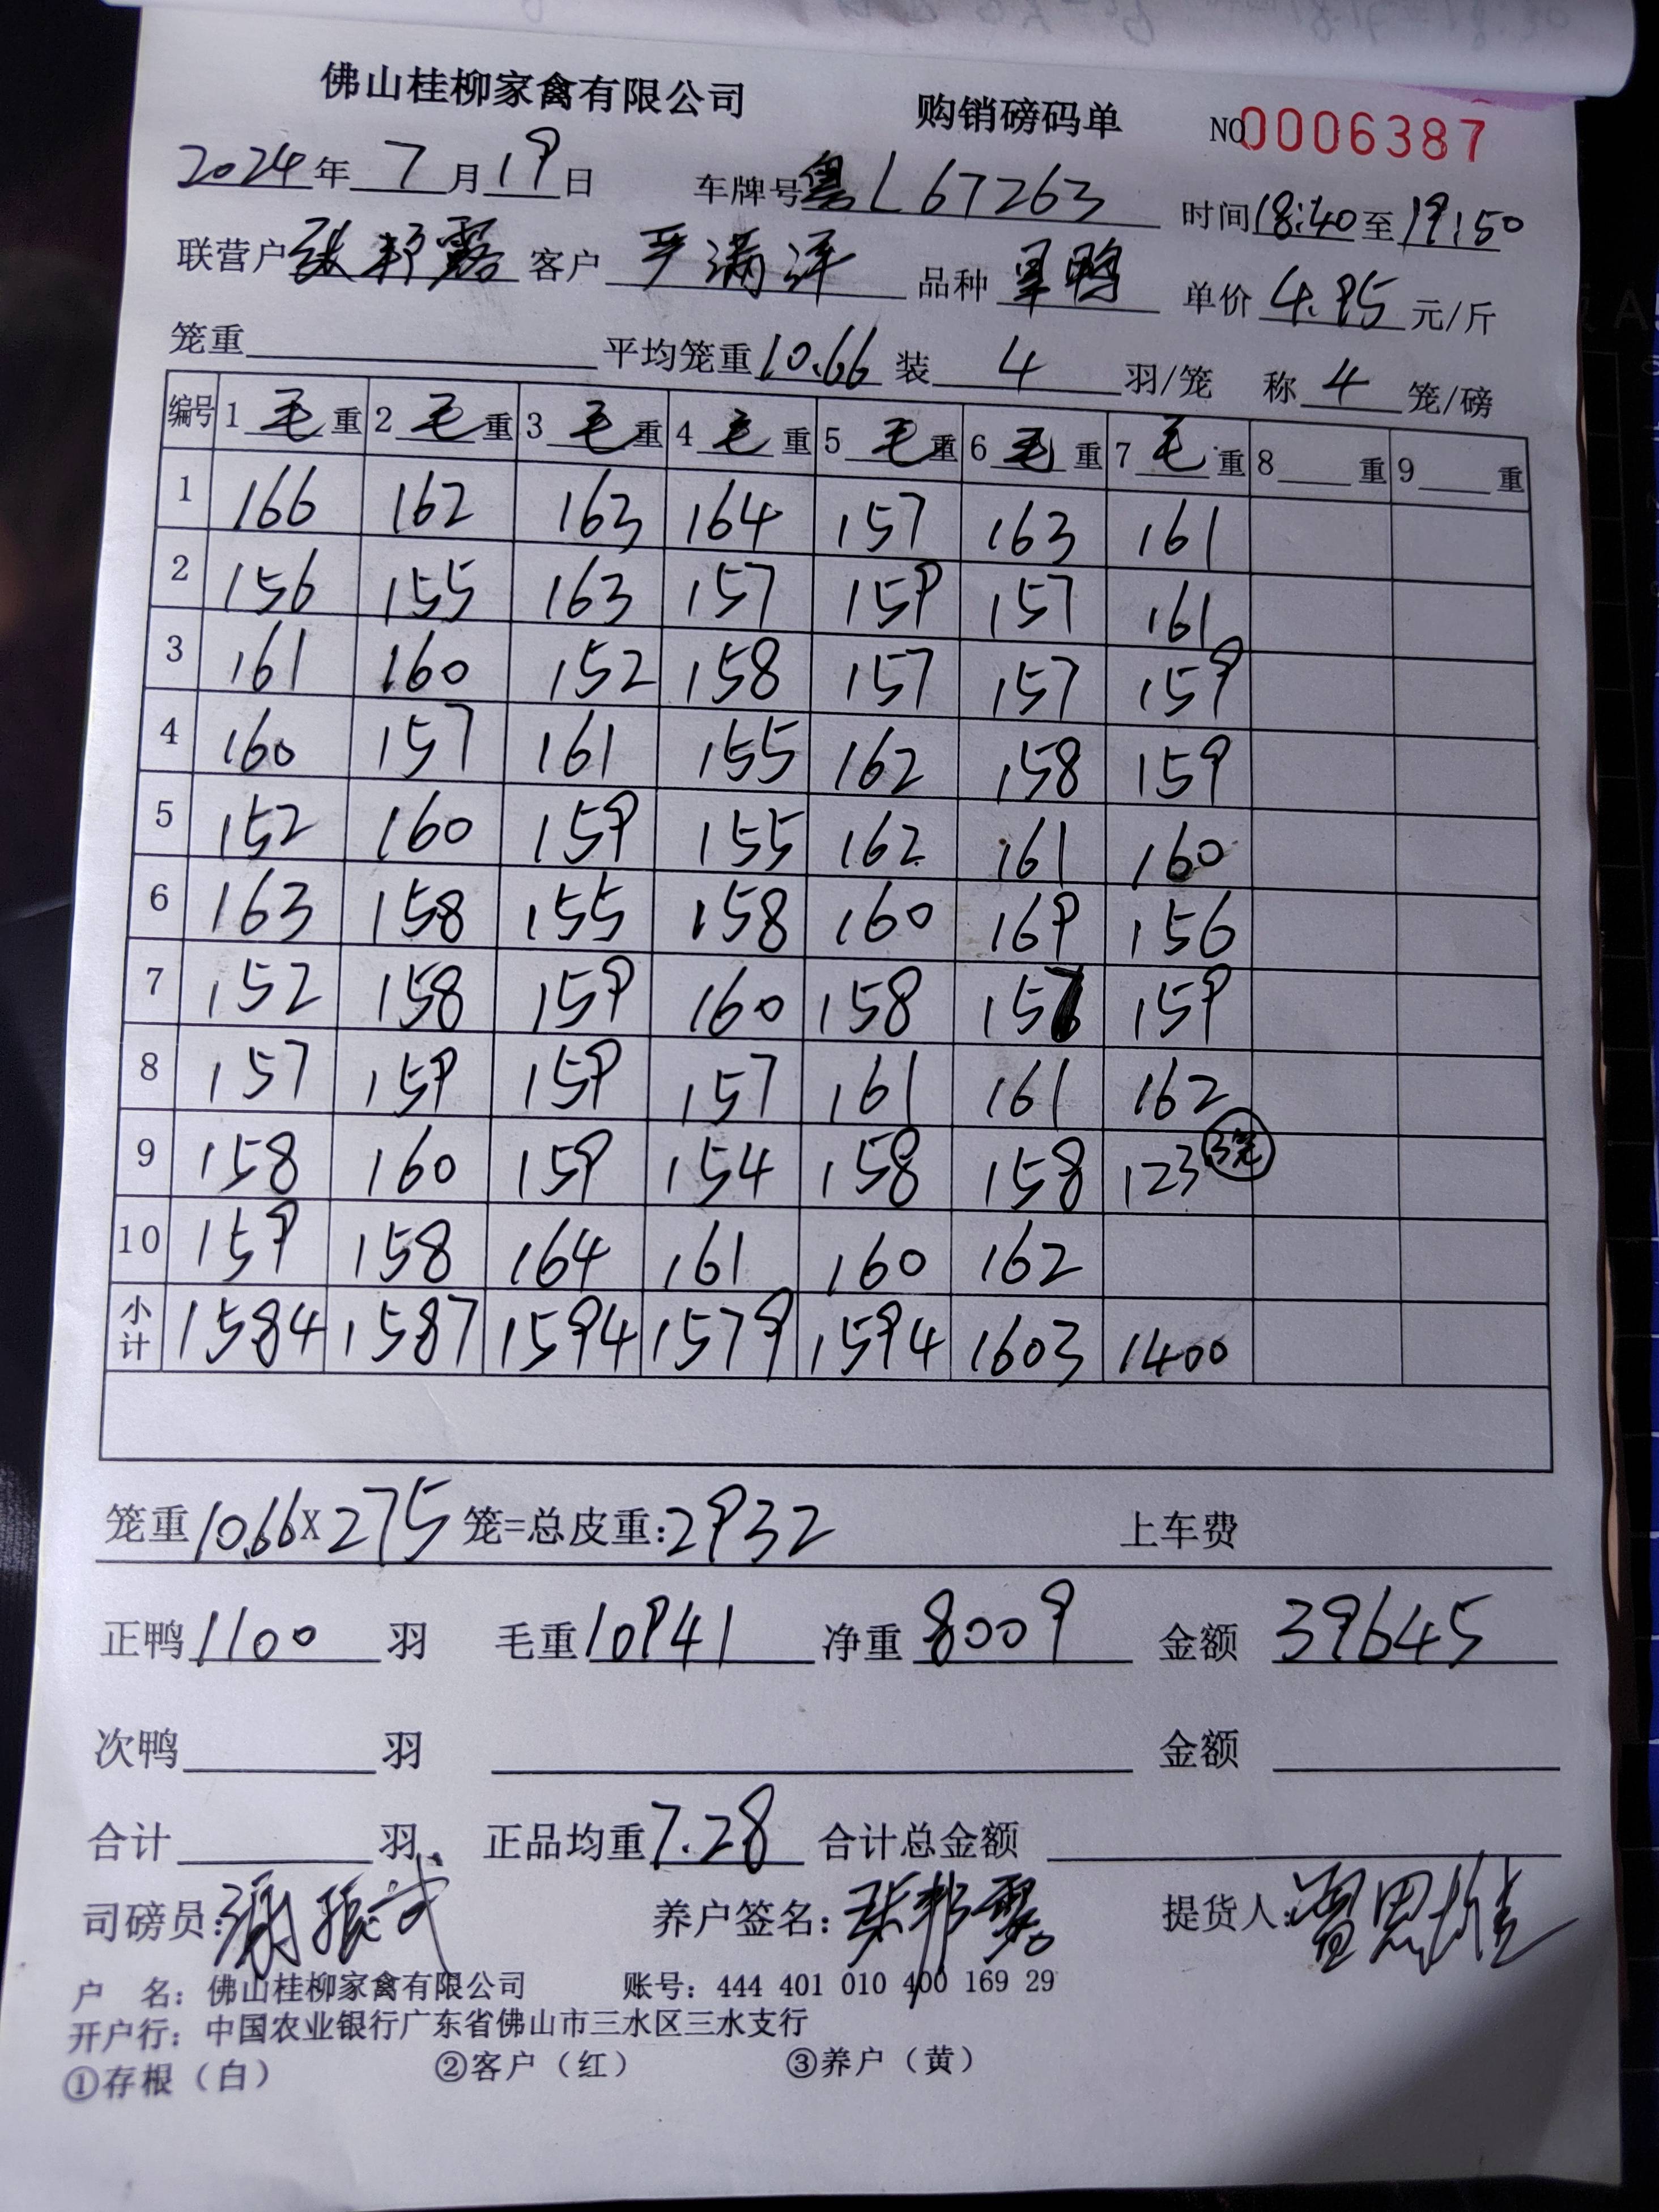 佛山桂柳家禽有限公司 购销磅码单 NO0006387
2024年7月19日 车牌号粤L67263 时间18:40至19:50
联营户 客户 严满洋 品种 单价4.95元/斤
笼重 平均笼重10.66装4羽/笼 称4笼/磅
编号 1毛重 2毛重 3毛重 4毛重 5毛重 6毛重 7毛重 8重 9重
1 166 162 163 164 157 163 161
2 156 155 163 157 159 157 161
3 161 160 152 158 157 157 159
4 160 157 161 155 162 158 159
5 152 160 159 155 162 161 160
6 163 158 155 158 160 169 156
7 152 158 159 160 158 157 159
8 157 159 159 157 161 161 162
9 158 160 159 154 158 158 123 3笼
10 159 158 164 161 160 162
小计 1584 1587 1594 1579 1594 1603 1400
笼重10.66X275笼=总皮重:2932 上车费
正鸭1100羽 毛重10941 净重8009 金额39645
次鸭 羽 金额
合计 羽 正品均重7.28 合计总金额
司磅员: 养户签名: 提货人:
户 名: 佛山桂柳家禽有限公司 账号: 444 401 010 400 169 29
开户行: 中国农业银行广东省佛山市三水区三水支行
①存根(白) ②客户(红) ③养户(黄)